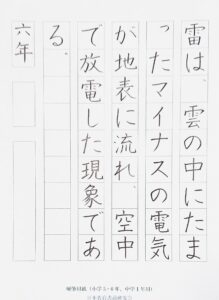 雷は、雲の中にたま
ったマイナスの電気
が地表に流れ、空中
で放電した現象であ
る。
六年
硬筆用紙（小学5・6年、中学1年用）